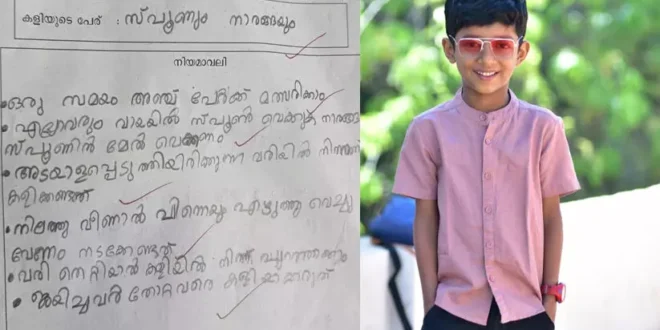 കളിയുടെ പേര് : സ്പൂണും നാരങ്ങയും
നിയമാവലി
•ഒരു സമയം അഞ്ച് പേർക്ക് മത്സരിക്കാം
• എല്ലാവരും വായയിൽ സ്പൂൺ വെക്കുക നാരങ്ങ
സ്പൂണിൻ മേൽ വെക്കണം
• അടയാളപ്പെടുത്തിയിരിക്കുന്ന വരിയിൽ നിന്നാണ്
കളിക്കേണ്ടത്
• നിലത്തു വീണാൽ പിന്നെയും എടുത്തു വെച്ചു
വേണം നടക്കേണ്ടത്
• വരി തെറ്റിയാൽ കളിയിൽ നിന്ന് പുറത്താക്കും
• ജയിച്ചവർ തോറ്റവരെ കളിയാക്കരുത്